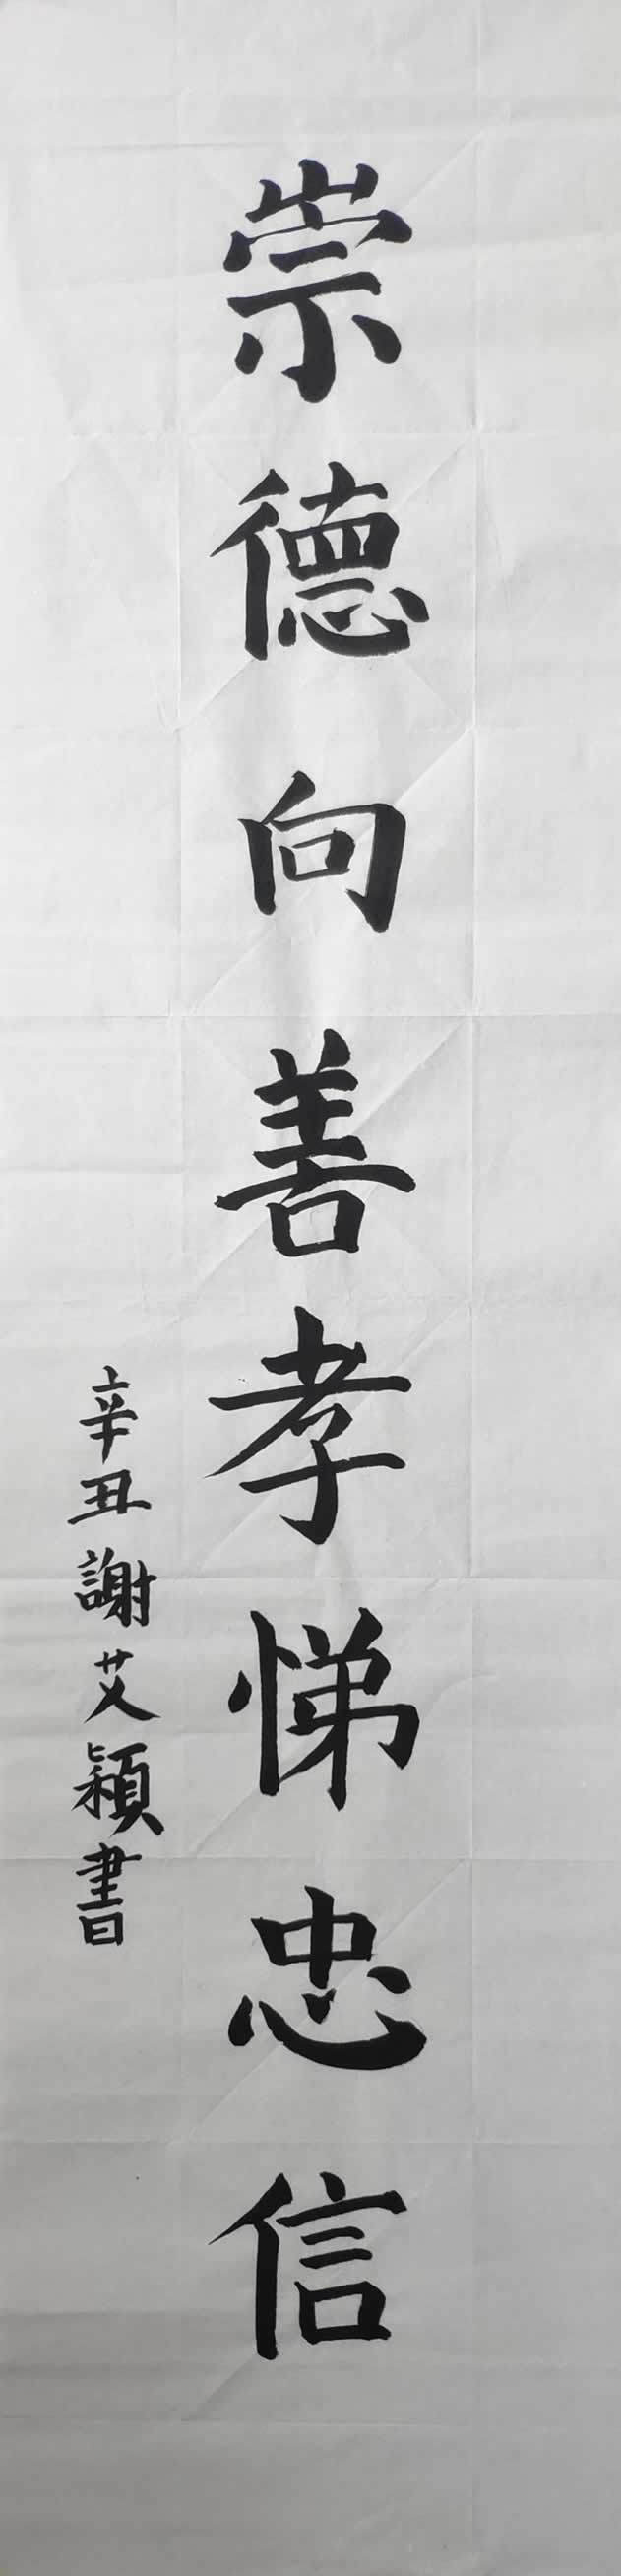 崇德向善孝悌忠信
辛丑謝艾穎書